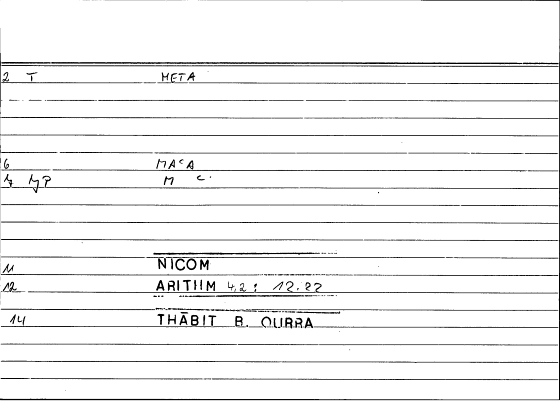 2 T META
6 MACA
M C.
11 NICOM
12 ARITHM 4,2 : 12.22
14 THĀBIT B. QURRA